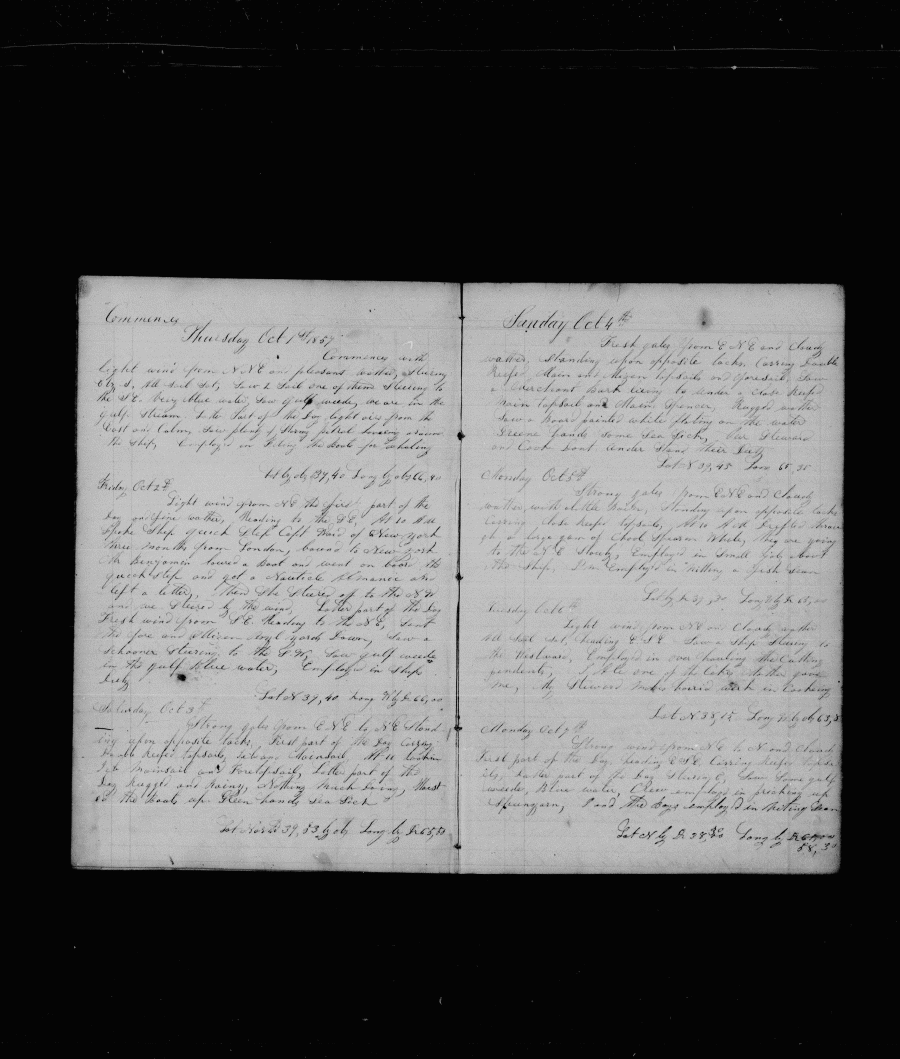 Commences
Thursday Oct 1st 1857
Commences with
light wind from N NE and pleasant wather, Stearing
all sail set, Saw 2 Sail one of them Stearing to
the SE. Very blue water, Saw gulf weede, we are in the
gulf Stream. Latter Part of the Day light airs from the
East and Calm, Saw plenty of Stormy petrel around
the Ship, Employed in fiting the boats for whaling
Lat by ob 39,40 Long by ob 66,40
Friday Oct 2th
Light wind from NE the first part of the
Day and fine wather, Heading to the SE, At 10 AM
Spoke Ship Quick Step Capt of New York
three months from London, bound to New York
Mr Benjamen lowered a boat and went on board the
quick Step and got a Nautical Almanac and
left a letter, Then She Steared of to the NW
and we Steared by the wind, Latter part of the Day
Fresh wind from SE Heading to the NE, Sent
the fore and Mizen Royl yards Down, Saw a
Schooner Stearing to the S.W, Saw gulf weede
in the gulf Blue water, Employed in Ships
Duty
Lat N 39,40 Long W by Dr 66,00
Saturday Oct 3th
Strong gales from E NE to NE Stand
ing upon opposite tacks, First part of the Day Carring
Double Reefed Topsails,
Mainsail and Foretopsail, Latter part of the
Day Rugged and Rainy, Nothing Much Doing,
the Boats up. Green hands Sea Sick
Lat North 39,53 by ob Long by Dr 65,50
Sunday Oct 4th
Fresh gales from E NE and Cloudy
wather, Standing upon opposite tacks, Carring Double
Reefed Main and Mizen topsails and foresail, Saw
a Merchant Bark lieing to under a Close Reefed
main topsail and Main Spencer, Rugged wather
Saw a Board painted white floting on the water
Greene hands some Sea Sick, Our Steward
and Cook Dont under Stand their Duty
Lat N 39,45 Long 65,35
Monday Oct 5th
Strong gales from E NE and Cloudy
wather, with a little Rain, Standing upon opposite tacks
Carring Close Reefed topsails, At 10 AM Drifted throu
gh a large gam of Chool Sparm Whale, they are going
to the NE Slowly, Employed in Small Jobs about
the Ship. I am Employed in Kniting a Fish Sean
Lat by Dr 39, Long W by Dr 65,00
Tuesday Oct 6th
Light wind from NE and Cloudy wather
all Sail Set, heading E SE Saw a Ship Stearing to
the Westward, Employed in over hauling the Cutting
pendents, I Ate one of the Cakes Mother gave
me, My Steward in Cooking
Lat N 38,15 Long W by ob 63,
Monday Oct 7th
Strong wind from NE to N and Cloudy
First part of the Day, heading E SE Carring Reefed topsa
ils, Latter part of the Day Stearing E, Saw Some gulf
weede, Blue water, Crew employed in picking up
Spunyarn, I and the Boys employed in kniting Sean
Lat N by Dr 38,20 Long by Dr
58,30